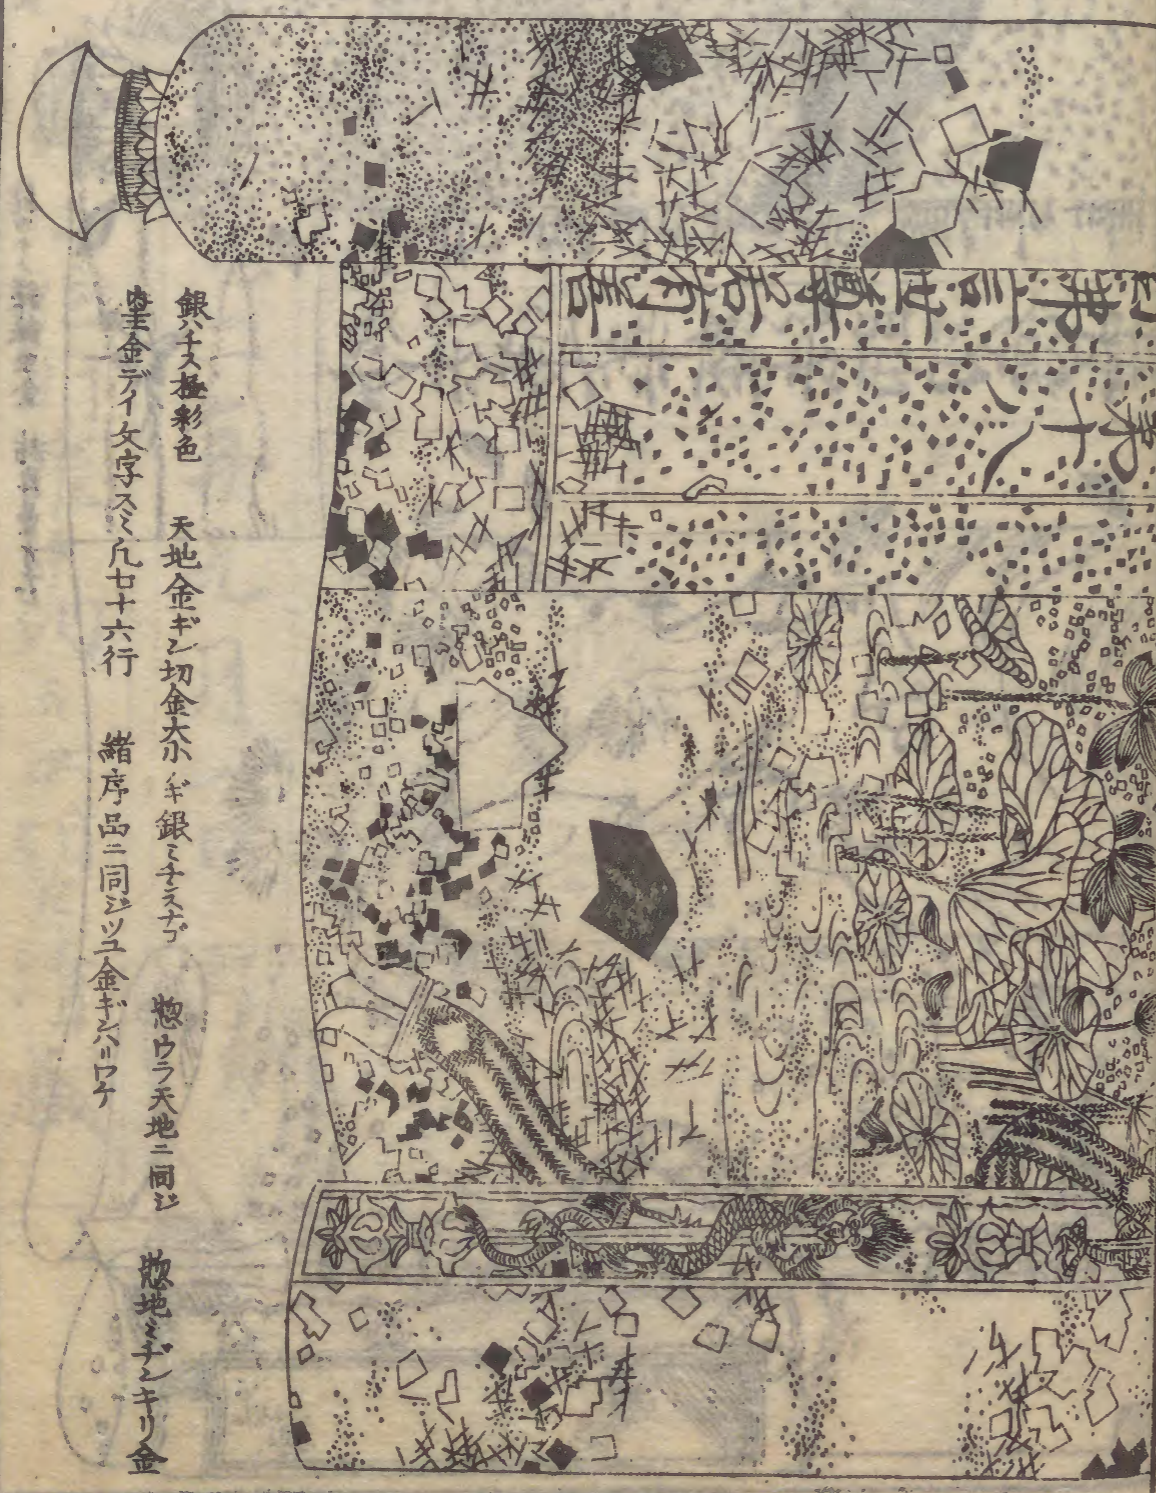 佛言世尊若有善
十八
銀ハチス極彩色　天地金ギン切金大小ノギ銀ミヂンスナゴ　惣ウラ天地ニ同ジ　惣地ミヂンキリ金
金デイ文字スミ凡七十六行　緒序品ニ同ジツユ金ギンハリワケ